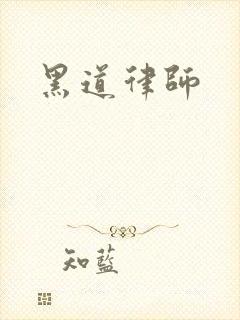 黑道律師
知藍